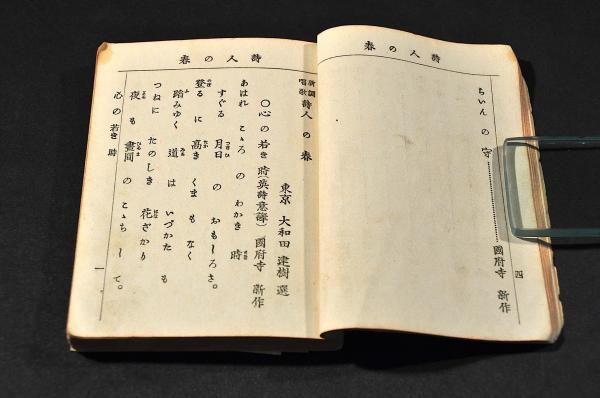 詩人の春
ちいんの守…………國府寺 新作
四
詩人の春
新調唱歌 詩人の春
東京 大和田 建樹 選
〇心の若き時(英詩意譯) 國府寺 新作
あはれ こゝろ の わかき 時
すぐる 月日 の おもしろさ。
登る に 高き くま も なく
踏みゆく 道 は いづかた も
つねに たのしき 花ざかり
夜 も 晝間 の こゝち して。
心の若き時
一